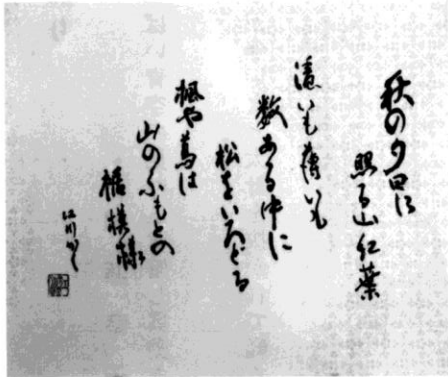 秋の夕日に
照る山紅葉
濃いも薄いも
数ある中に
松をいろどる
楓や蔦は
山のふもとの
裾模様